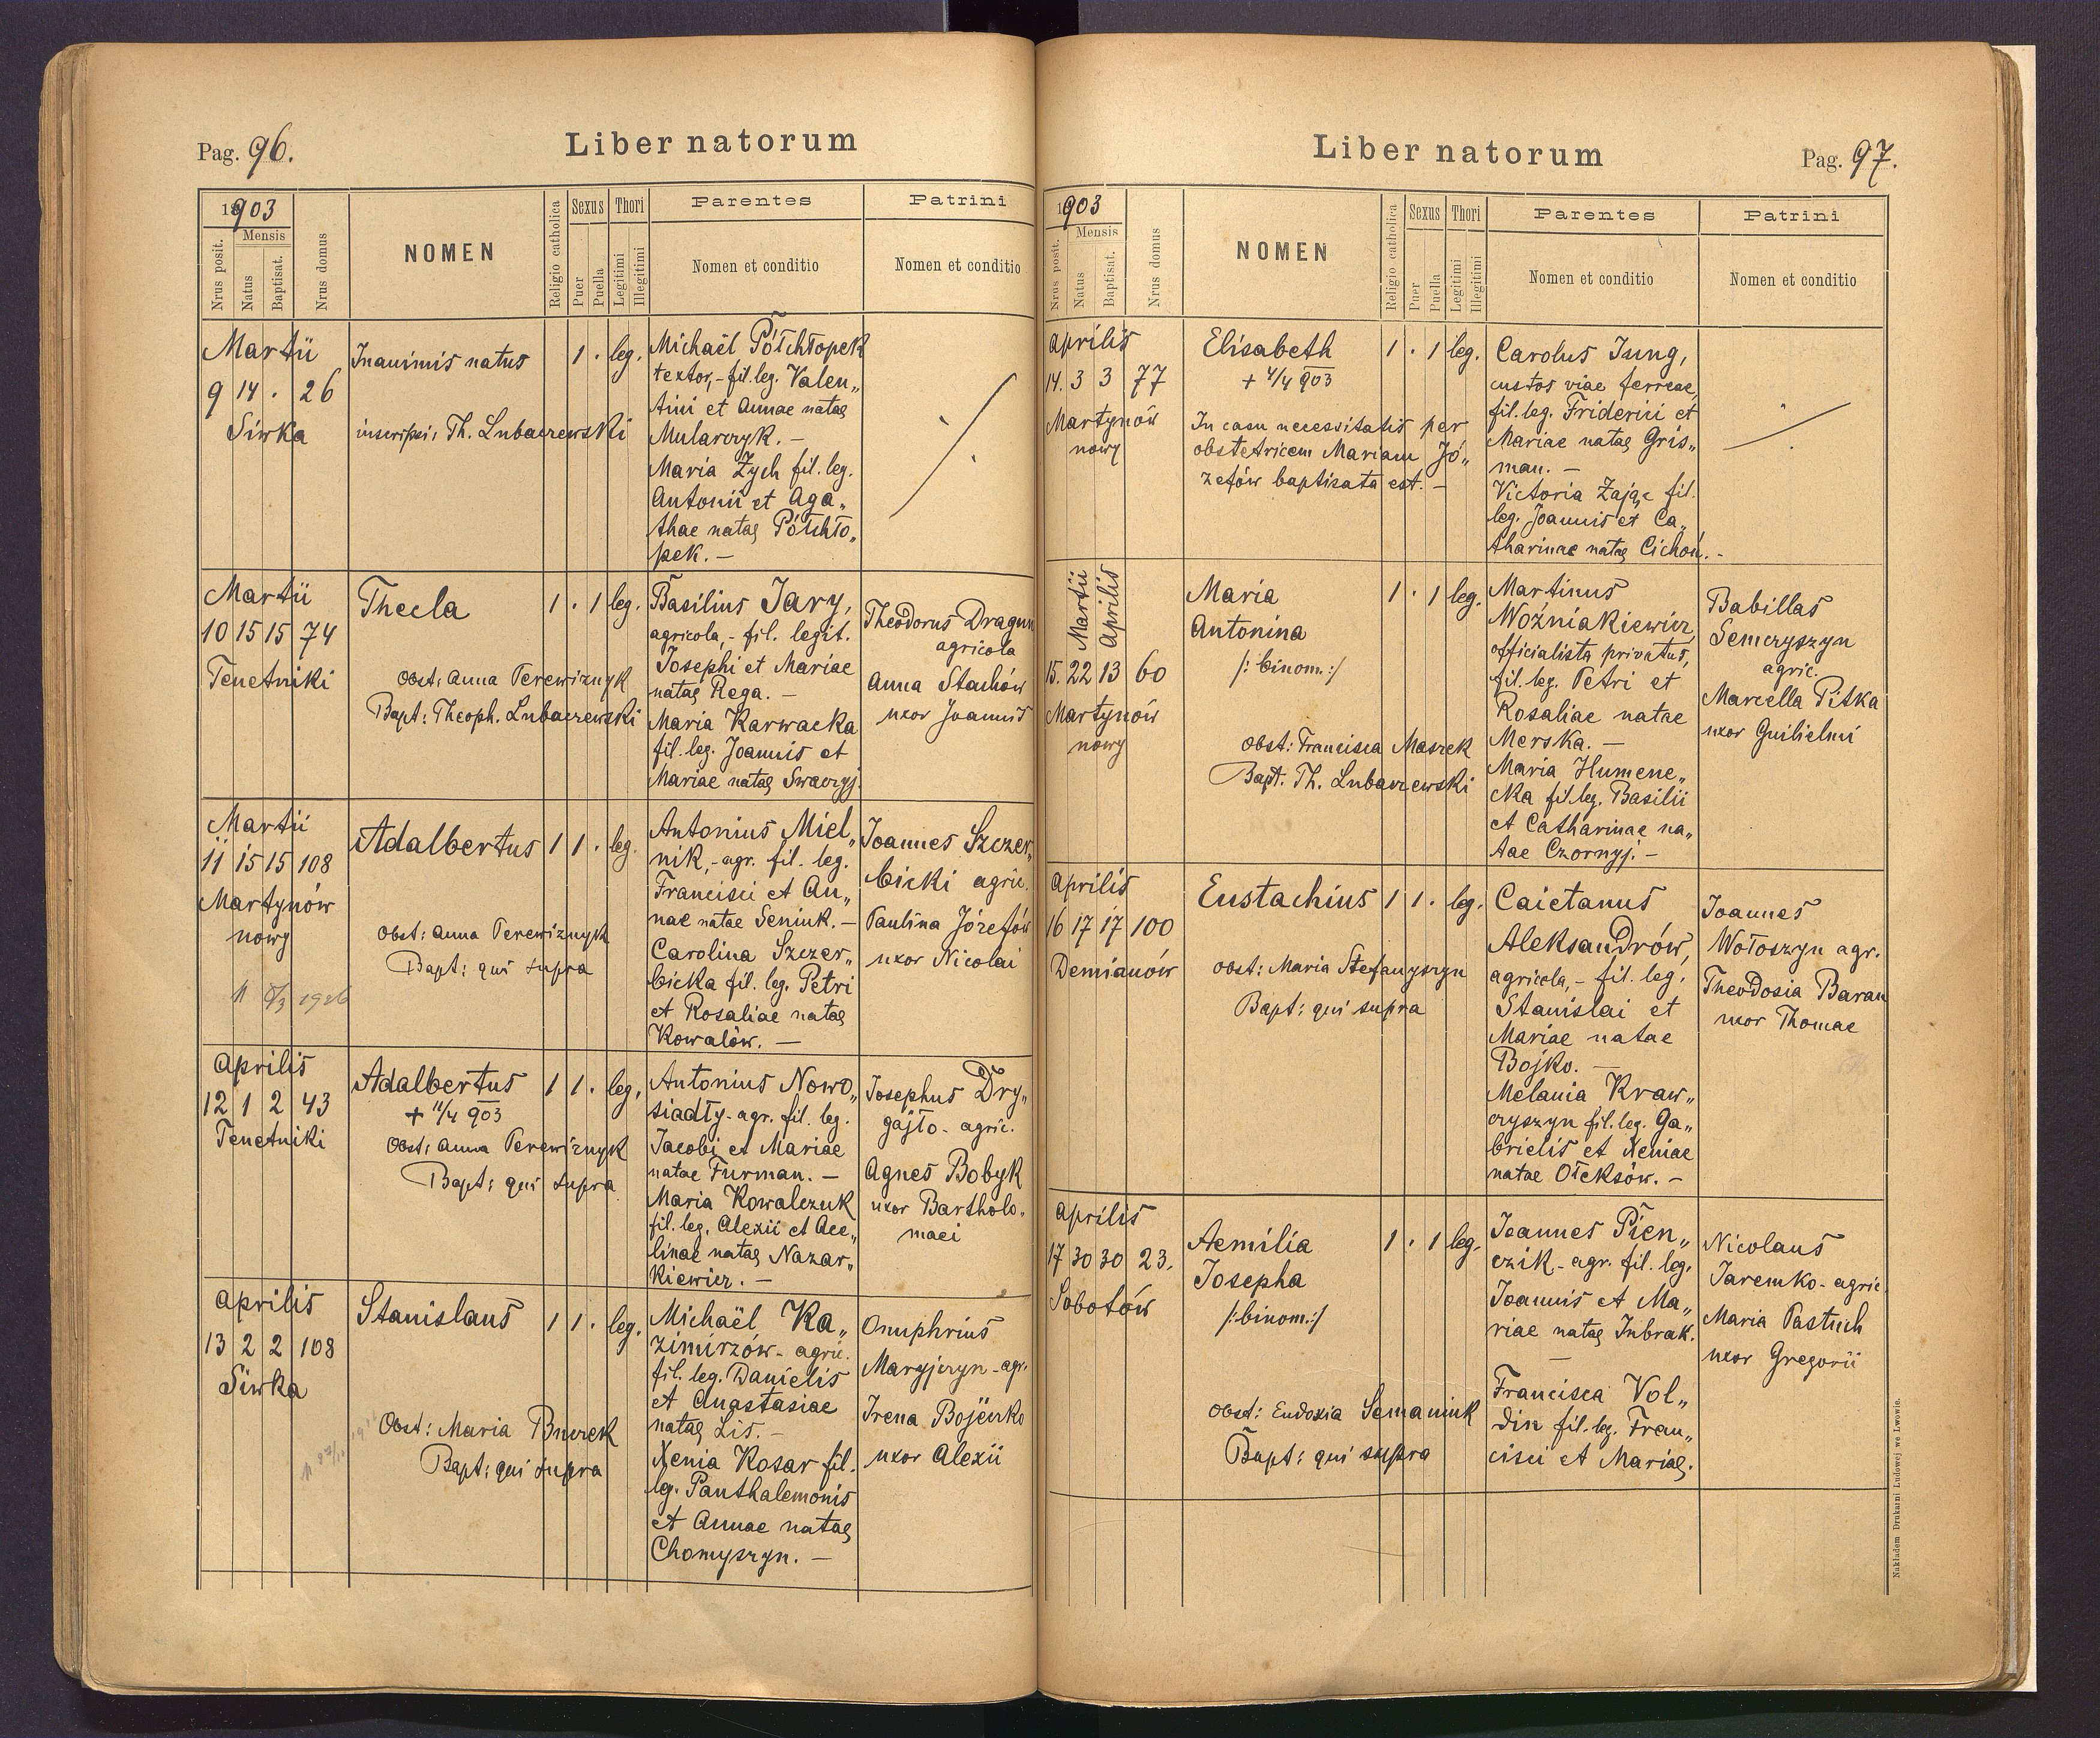 Pag. 96.
Liber natorum
1903
Nrus posit.
Mensis
Natus
Baptisat.
Nrus domus
NOMEN
Religio catholica
Sexus
Puer
Puella
Thori
Legitimi
Illegitimi
Parentes
Nomen et conditio
Patrini
Nomen et conditio
Martii
9 14 . 26
Siwka
Inanimis natus
inscripsi: Th. Lubaczewski
1 . leg.
Michaël Półchłopek
textor, - fil. leg. Valen„
tini et Annae natae
Mularczyk. -
Maria Zych fil. leg.
Antonii et Aga„
thae natae Półchło„
pek. -
Martii
10 15 15 74
Tenetniki
Thecla
Obst: Anna Perewiznyk
Bapt: Theoph. Lubaczewski
1 . 1 leg.
Basilius Jary,
agricola, - fil. legit.
Josephi et Mariae
natae Rega. -
Maria Karwacka
fil. leg. Joannis et
Mariae natae Swaczyj.
Theodorus Dragun
agricola
Anna Stachów
uxor Joannis
Martii
11 15 15 108
Martynów
nowy
Adalbertus
Obst: Anna Perewiznyk
Bapt: qui supra
1 1 . leg.
Antonius Miel„
nik, - agr. fil. leg.
Francisci et An„
nae natae Seniuk. -
Carolina Szczer„
bicka fil. leg. Petri
et Rosaliae natae
Kowalów. -
Joannes Szczer„
bicki agric.
Paulina Józefów
uxor Nicolai
Aprilis
12 1 2 43
Tenetniki
Adalbertus
+ 11/4 903
Obst: Anna Perewiznyk
Bapt: qui supra
1 1 . leg.
Antonius Nowo„
siadły - agr. fil. leg.
Jacobi et Mariae
natae Furman. -
Maria Kowalczuk
fil. leg. Alexii et Ace„
linae natae Nazar„
kiewicz. -
Josephus Dry„
gajło - agric.
Agnes Bobyk
uxor Bartholo„
maei
Aprilis
13 2 2 108
Siwka
Stanislaus
Obst: Maria Burek
Bapt: qui supra
1 1 . leg.
Michaël Ka„
zimirzów - agric.
fil. leg. Danielis
et Anastasiae
natae Lis. -
Xenia Kosar fil.
leg. Panthalemonis
et Annae natae
Chomyszyn. -
Onuphrius
Maryjczyn - agr.
Irena Bojeczko
uxor Alexii
Liber natorum
Pag. 97.
1903
Nrus posit.
Mensis
Natus
Baptisat.
Nrus domus
NOMEN
Religio catholica
Sexus
Puer
Puella
Thori
Legitimi
Illegitimi
Parentes
Nomen et conditio
Patrini
Nomen et conditio
Aprilis
14. 3 3 77
Martynów
nowy
Elisabeth
+ 4/4 903
In casu necessitatis per
obstetricem Mariam Jó„
zefów baptisata est. -
1 . 1 leg.
Carolus Jung,
custos viae ferreae,
fil. leg. Friderici et
Mariae natae Gris„
man. -
Victoria Zając fil.
leg. Joannis et Ca„
tharinae natae Cichoń. -
Martii
Aprilis
15. 22 13 60
Martynów
nowy
Maria
Antonina
/: binom. :/
Obst: Francisca Maszek
Bapt. Th. Lubaczewski
1 . 1 leg.
Martinus
Woźniakiewicz,
officialista privatus,
fil. leg. Petri et
Rosaliae natae
Merska. -
Maria Humene„
cka fil. leg. Basilii
et Catharinae na„
tae Czornyj. -
Babillas
Semczyszyn
agric.
Marcella Pitka
uxor Guilielmi
Aprilis
16 17 17 100
Demianów
Eustachius
Obst: Maria Stefanyszyn
Bapt: qui supra
1 1 . leg.
Caietanus
Aleksandrów,
agricola, - fil. leg.
Stanislai et
Mariae natae
Bojko. -
Melania Kraw„
czyszyn fil. leg. Ga„
brielis et Xeniae
natae Ołeksów. -
Joannes
Wołoszyn agr.
Theodosia Baran
uxor Thomae
Aprilis
17 30 30 23.
Sobotów
Aemilia
Josepha
/: binom. :/
Obst: Eudoxia Semaniuk
Bapt: qui supra
1 . 1 leg.
Joannes Pien„
czik - agr. fil. leg.
Joannis et Ma„
riae natae Jubrak.
-
Francisca Vol„
din fil. leg. Fran„
cisci et Mariae.
Nicolaus
Jaremko - agric.
Maria Pastuch
uxor Gregorii
Nakładem Drukarni Ludowej we Lwowie.